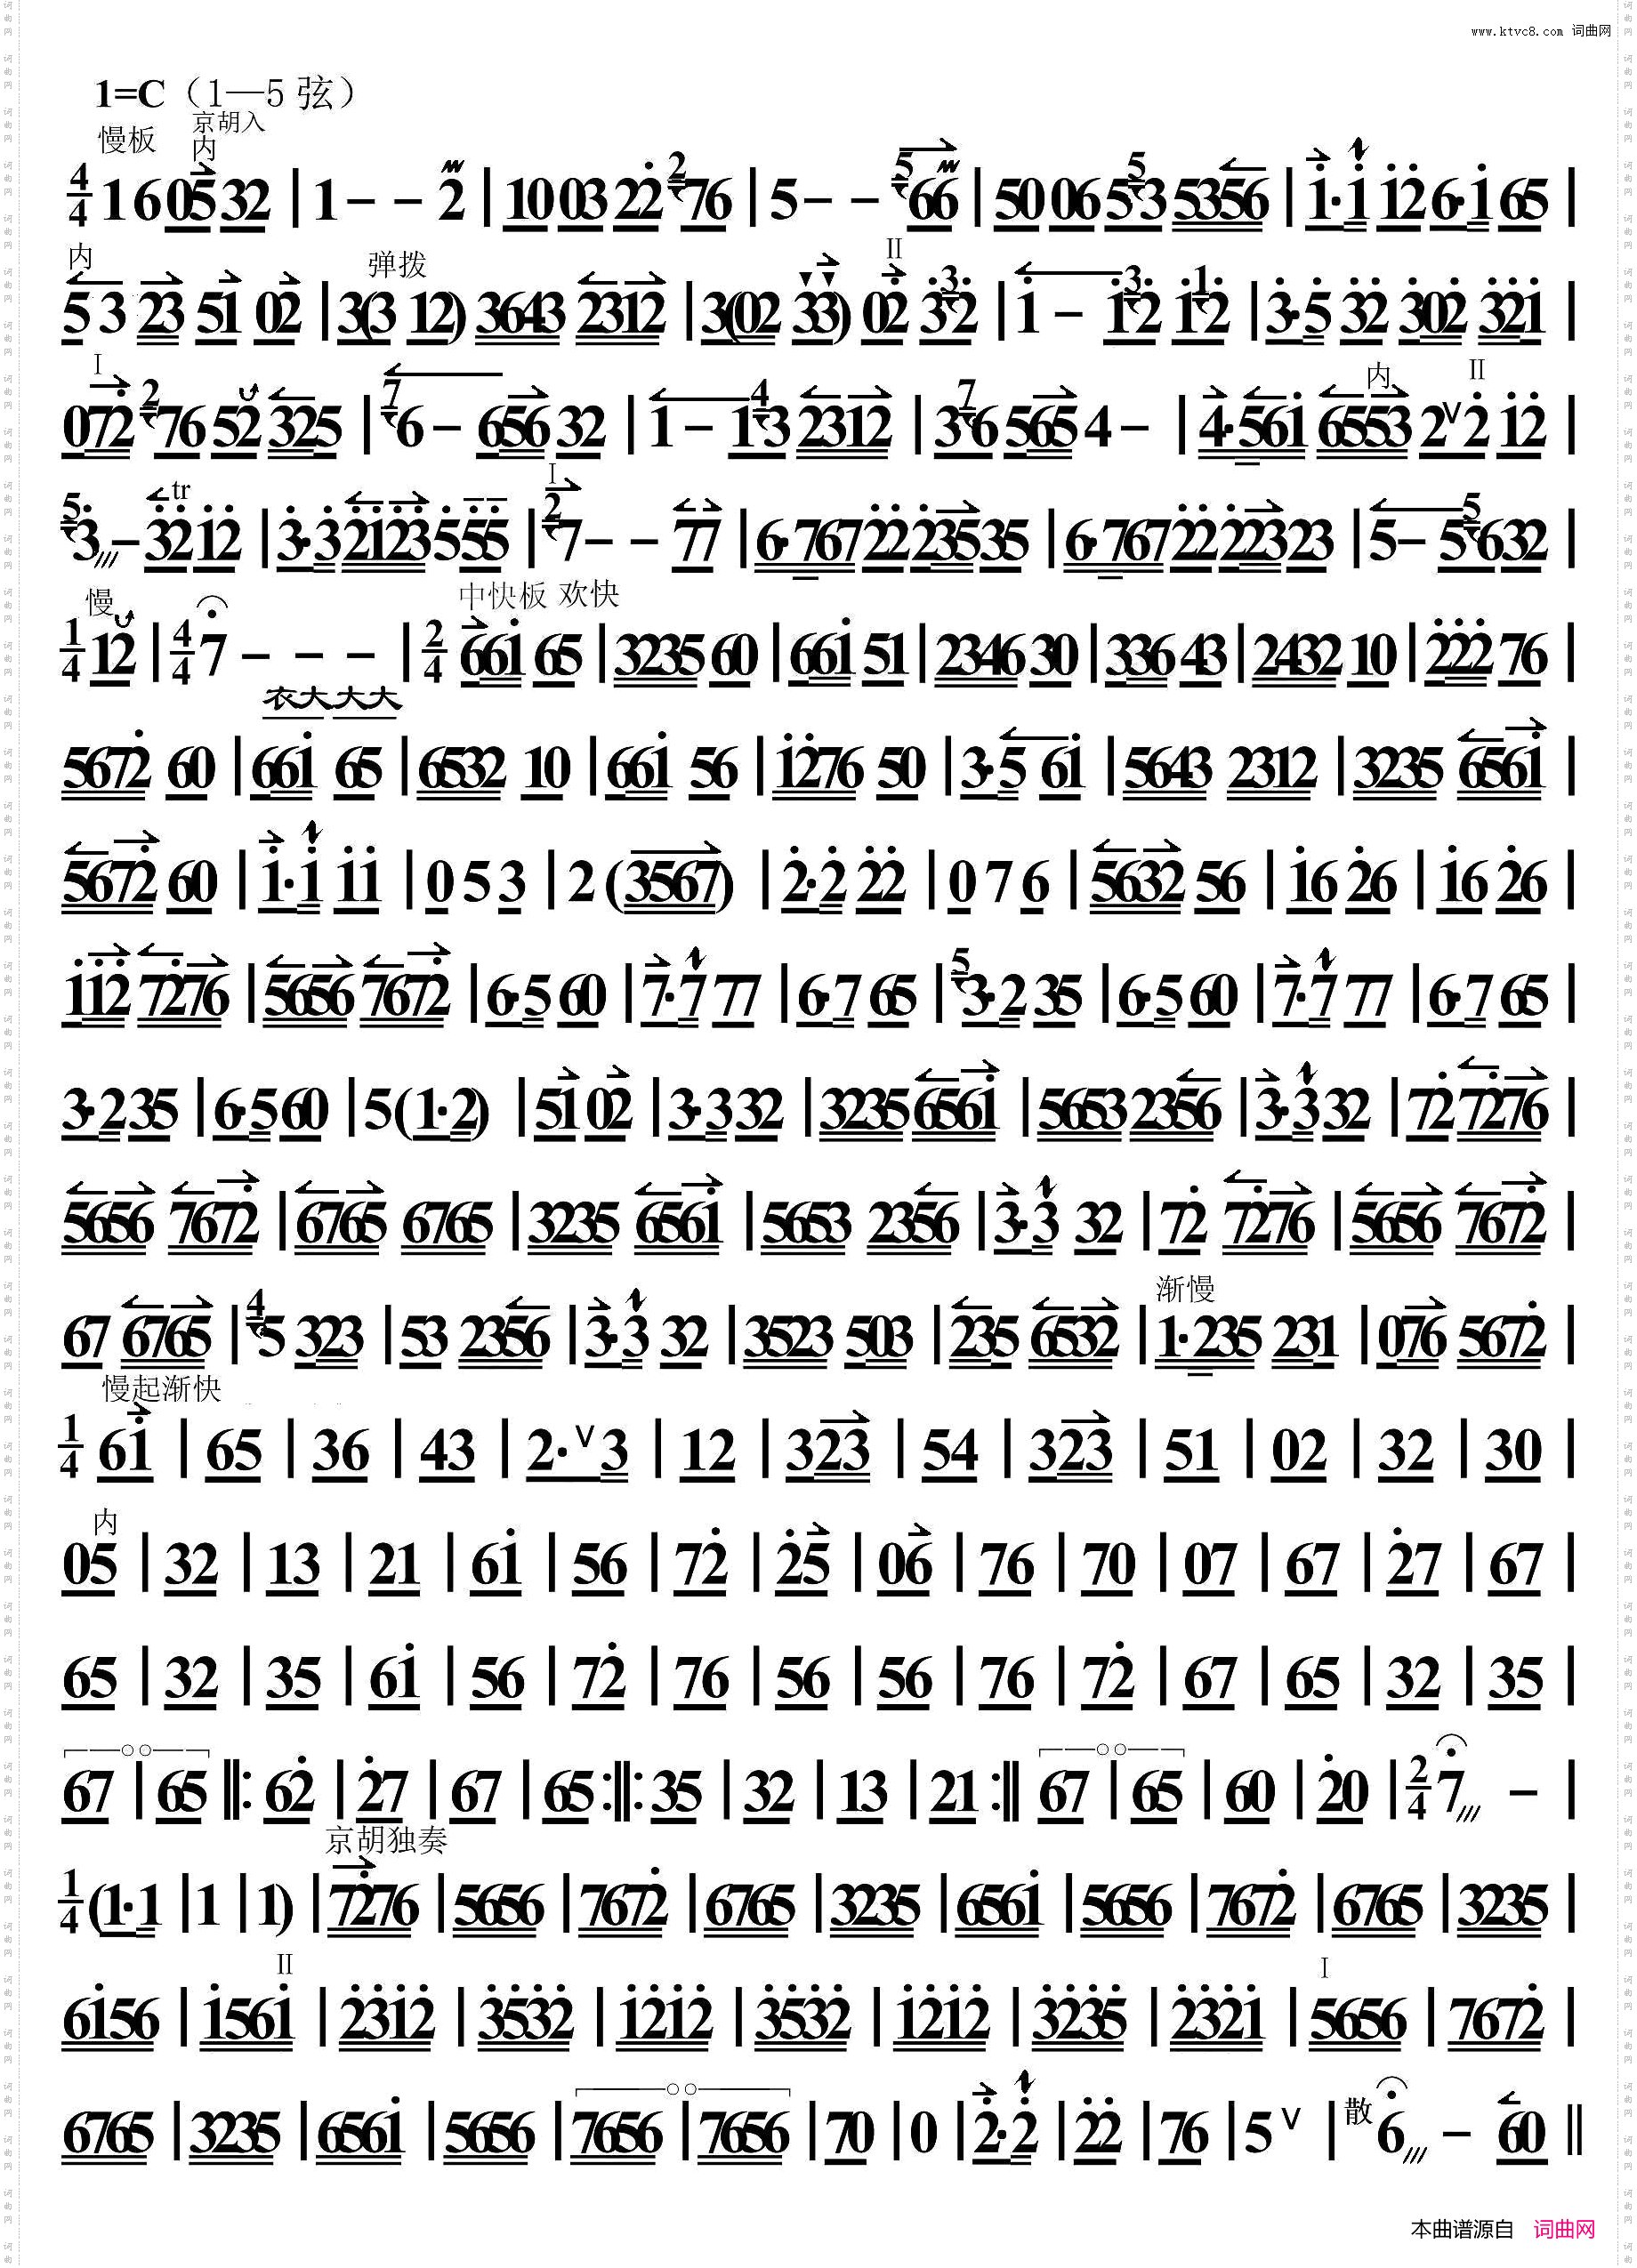 www.ktvc8.com 词曲网
1=C（1—5 弦）
慢板 京胡入
内
4/4 1 6 05 32 | 1 - - 2 | 10 03 22̇ 2 76 | 5 - - 5 66 | 50 06 5 5 3 5356 | 1̇·1̇ 1̇2̇ 6·1̇ 65 |
内 弹拨 II
5 3 23 51 02 | 3(3 12) 3643 2312 | 3(02 33) 02̇ 3̇ 3 2̇ | 1̇ - 1̇ 3 2̇ 1̇ 1 2̇ | 3̇·5̇ 3̇2̇ 3̇02̇ 3̇2̇1̇ |
I 内 II
072̇ 2 76 52 325 | 7 6 - 656 32 | 1 - 1 4 3 2312 | 3 7 6 565 4 - | 4·561̇ 6553 2 V 2̇ 1̇2̇ |
tr I
5 3̇ - 3̇2̇ 1̇2̇ | 3̇·3̇ 2̇1̇2̇3̇ 5̇5̇5̇ | 2 7 - - 77 | 6·767 2̇2̇ 2̇35 35 | 6·767 2̇2̇ 2̇23 23 | 5 - 5 5 6 32 |
慢 中快板 欢快
1/4 12 | 4/4 7 - - - | 2/4 661̇ 65 | 3235 60 | 661̇ 51 | 2346 30 | 336 43 | 2432 10 | 2̇2̇2̇ 76 |
衣大大大
5672̇ 60 | 661̇ 65 | 6532 10 | 661̇ 56 | 1̇276 50 | 3·5 61̇ | 5643 2312 | 3235 6561̇ |
5672̇ 60 | 1̇·1̇ 1̇1̇ | 0 5 3 | 2 (3567) | 2̇·2̇ 2̇2̇ | 0 7 6 | 5632 56 | 1̇6 2̇6 | 1̇6 2̇6 |
1̇1̇2̇ 72̇76 | 5656 7672̇ | 6·5 60 | 7·7 77 | 6·7 65 | 5 3·2 35 | 6·5 60 | 7·7 77 | 6·7 65 |
3·2 35 | 6·5 60 | 5 (1·2) | 51 02 | 3·3 32 | 3235 6561̇ | 5653 2356 | 3·3 32 | 72̇ 72̇76 |
5656 7672̇ | 6765 6765 | 3235 6561̇ | 5653 2356 | 3·3 32 | 72̇ 72̇76 | 5656 7672̇ |
渐慢
67 6765 | 4 5 323 | 53 2356 | 3·3 32 | 3523 503 | 235 6532 | 1·235 231 | 076 5672̇ |
慢起渐快
1/4 61̇ | 65 | 36 | 43 | 2· V 3 | 12 | 323 | 54 | 323 | 51 | 02 | 32 | 30 |
内
05 | 32 | 13 | 21 | 61̇ | 56 | 72̇ | 2̇5 | 06 | 76 | 70 | 07 | 67 | 2̇7 | 67 |
65 | 32 | 35 | 61̇ | 56 | 72̇ | 76 | 56 | 56 | 76 | 72̇ | 67 | 65 | 32 | 35 |
67 | 65 ‖: 62̇ | 2̇7 | 67 | 65 :‖: 35 | 32 | 13 | 21 :‖ 67 | 65 | 60 | 2̇0 | 2/4 7 - |
京胡独奏
1/4 (1·1 | 1 | 1) | 72̇76 | 5656 | 7672̇ | 6765 | 3235 | 6561̇ | 5656 | 7672̇ | 6765 | 3235 |
II I
61̇56 | 1̇561̇ | 2̇3̇1̇2̇ | 3̇5̇3̇2̇ | 1̇2̇1̇2̇ | 3̇5̇3̇2̇ | 1̇2̇1̇2̇ | 3̇2̇3̇5̇ | 2̇3̇2̇1̇ | 5656 | 7672̇ |
6765 | 3235 | 6561̇ | 5656 | 7656 | 7656 | 70 | 0 | 2̇·2̇ | 2̇2̇ | 76 | 5 V | 散 6 - 60 ‖
本曲谱源自 词曲网